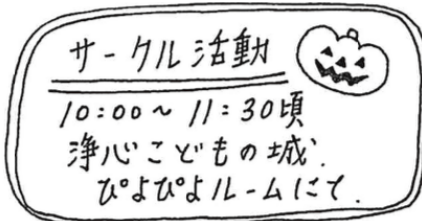 サークル活動
10:00～11:30頃
浄心こどもの城.
ぴよぴよルームにて.